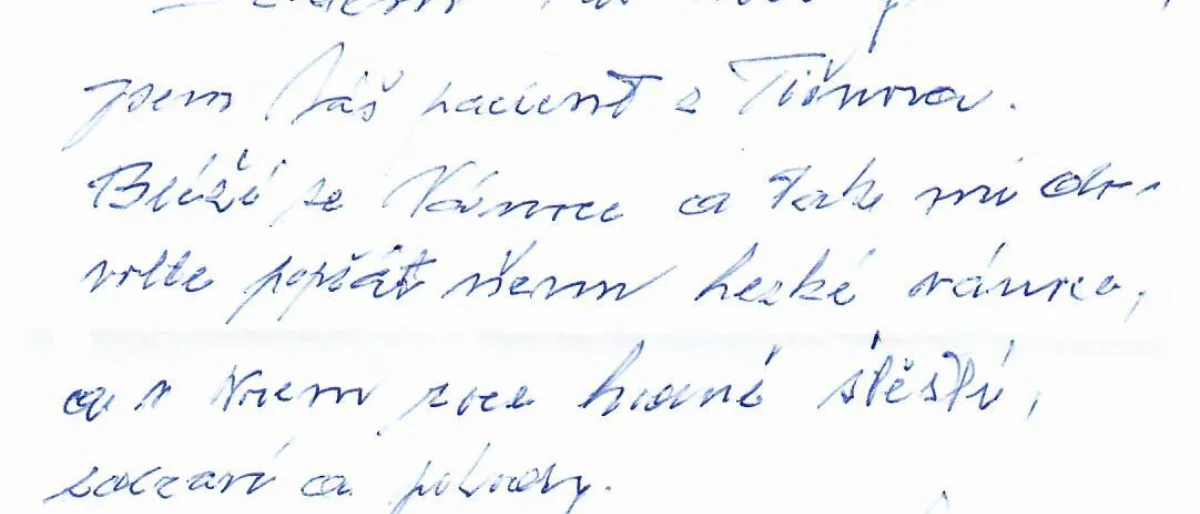 jsem Váš pacient z Tišnova.
Blíží se Vánoce a tak mi do-
volte popřát všem hezké vánoce,
a v Novém roce hodně štěstí,
zdraví a pohody.